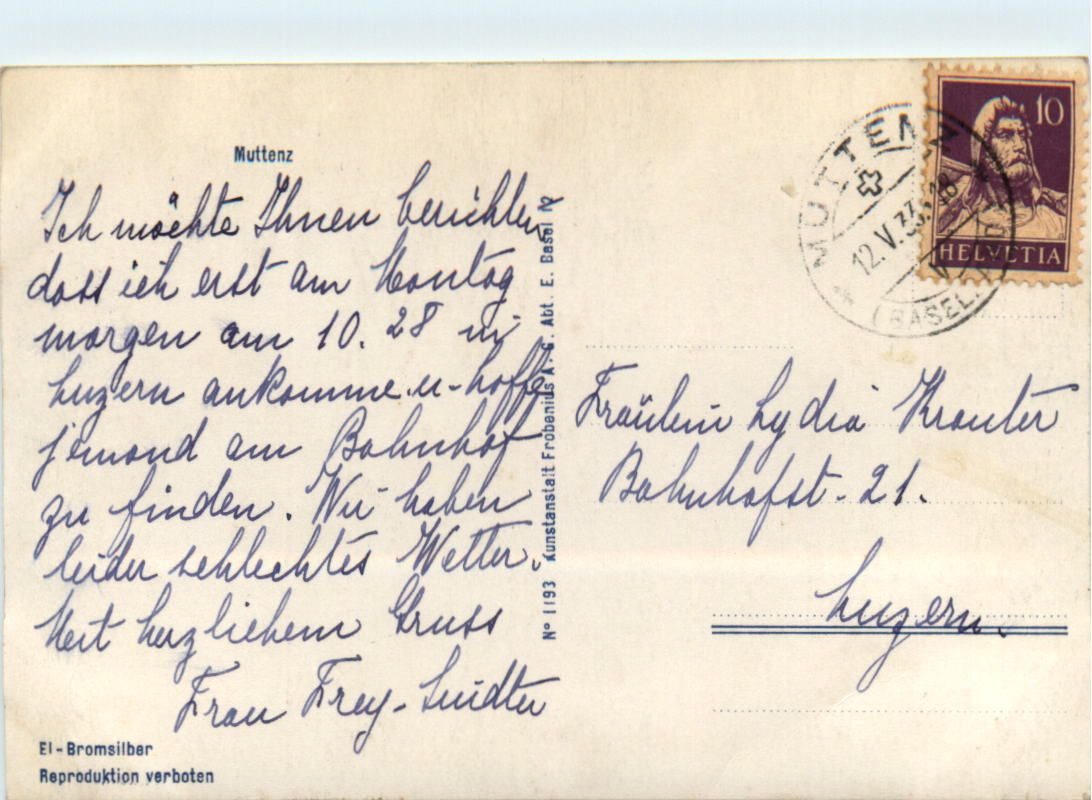 Muttenz
Ich möchte Ihnen berichten
dass ich erst am Montag
morgen am 10.28 in
Luzern ankomme u. hoffe
jemand am Bahnhof
zu finden. Wir haben
leider schlechtes Wetter.
Mit herzlichem Gruss
Frau Frey-
El-Bromsilber
Reproduktion verboten
Nº 1193 Kunstanstalt Frobenius A. G. Abt. E. Basel N2
10
HELVETIA
MUTTENZ
12.V.33.
(BASEL
Fräulein Lydia Krauter
Bahnhofst. 21.
Luzern.